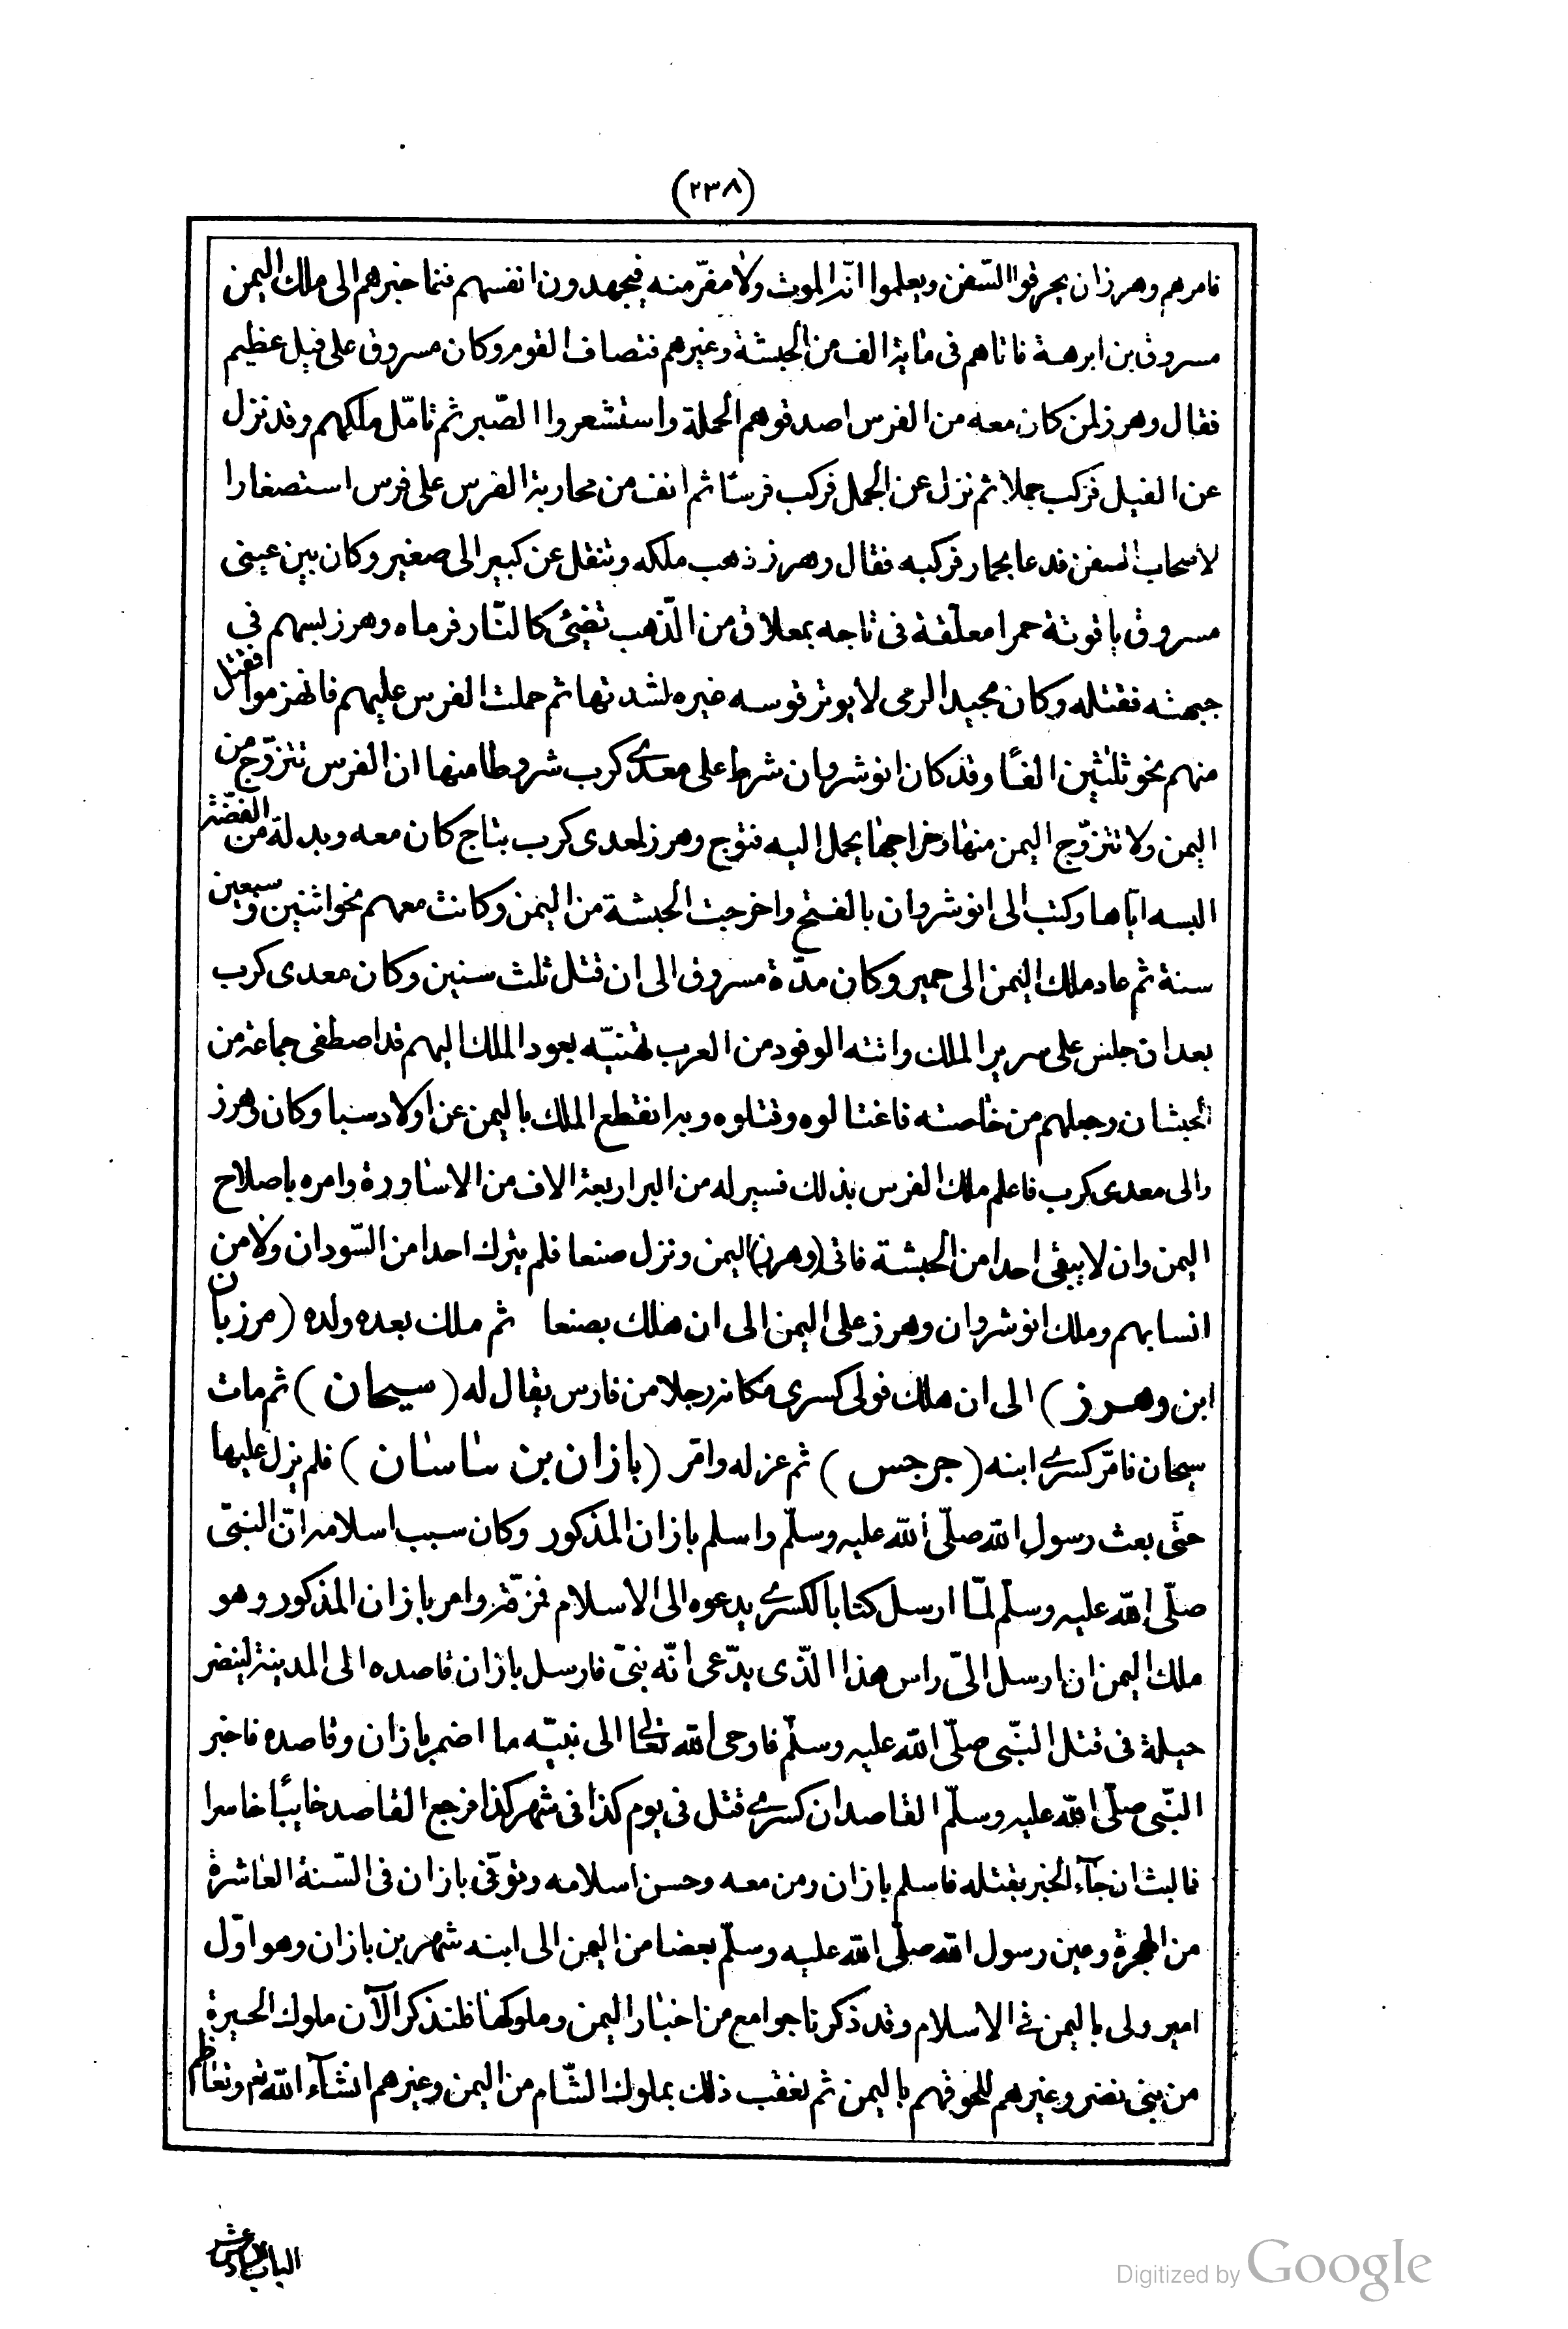 (٢٣٨)
فامرهم وهرز ان يحرقوا السّفن ويعلموا انّه الموت ولا مفرّ منه فيجهدون انفسهم فنما خبرهم الى ملك اليمن
مسروق بن ابرهة فاتاهم فى ماية الف من الحبشة وغيرهم فتصاف القوم وكان مسروق على فيل عظيم
فقال وهرز لمن كان معه من الفرس اصدقوهم الحملة واستشعروا الصّبر ثم تامّل ملكهم وقد نزل
عن الفيل فركب جملا ثم نزل عن الجمل فركب فرسًا ثم انف من محاربة الفرس على فرس استصغارا
لاصحاب السفن فدعا بحمار فركبه فقال وهرز ذهب ملكه وتنقل عن كبير الى صغير وكان بين عينى
مسروق ياقوتة حمرا معلّقة فى تاجه بمعلاق من الذّهب تضيئ كالنّار فرماه وهرز بسهم فى
جبهته فقتله وكان مجيد الرمى لا يوتر قوسه غيره لشدتها ثم حملت الفرس عليهم فانهزموا فقتل
منهم نحو ثلثين الفًا وقد كان انوشروان شرط على معدى كرب شروطا منها ان الفرس تتزوّج من
اليمن ولا تتزوّج اليمن منها وخراجها يحمل اليه فتوج وهرز لمعدى كرب بتاج كان معه وبدلة من الفضّة
البسه ايّاها وكتب الى انوشروان بالفتح واخرجت الحبشة من اليمن وكانت معهم نحو اثنين و سبعين
سنة ثم عاد ملك اليمن الى حمير وكان مدّة مسروق الى ان قتل ثلث سنين وكان معدى كرب
بعد ان جلس على سرير الملك واتته الوفود من العرب تهنيّه بعود الملك اليهم قد اصطفى جماعة من
الحبشان وجعلهم من خاصته فاغتالوه وقتلوه وبه انقطع الملك باليمن عن اولاد سبا وكان وهرز
والى معدى كرب فاعلم ملك الفرس بذلك فسير له من البر اربعة الاف من الاساورة وامره باصلاح
اليمن وان لا يبقى احدا من الحبشة فاتى (وهرز) اليمن ونزل صنعا فلم يترك احدا من السّودان ولا من
انسابهم وملك انوشروان وهرز على اليمن الى ان هلك بصنعا ثم ملك بعده ولده (مرزبان
ابن وهرز) الى ان هلك فولى كسرى مكانه رجلا من فارس يقال له (سيحان) ثم مات
سيحان فامّر كسرى ابنه (جرجس) ثم عزله وامّر (بازان بن ساسان) فلم يزل عليها
حتّى بعث رسول الله صلّى الله عليه وسلّم واسلم بازان المذكور وكان سبب اسلامه انّ النبىّ
صلّى الله عليه وسلّم لمّا ارسل كتابا لكسرى يدعوه الى الاسلام فمزّقه وامر بازان المذكور وهو
ملك اليمن ان ارسل الىّ راس هذا الّذى يدّعى انّه نبىّ فارسل بازان قاصده الى المدينة لينضر
حيلة فى قتل النّبى صلّى الله عليه وسلّم فاوحى الله تعالى الى نبيّه ما اضمر بازان وقاصده فاخبر
النّبى صلّى الله عليه وسلّم القاصد ان كسرى قتل فى يوم كذا فى شهر كذا فرجع القاصد خايبًا خاسرا
فما لبث ان جآء الخبر بقتله فاسلم بازان ومن معه وحسن اسلامه وتوفّى بازان فى السّنة العاشرة
من الهجرة وعين رسول الله صلّى الله عليه وسلّم بعضا من اليمن الى ابنه شهر بن بازان وهو اوّل
امير ولى باليمن فى الاسلام وقد ذكرنا جوامع من اخبار اليمن وملوكها فلنذكر الآن ملوك الحيرة
من بنى نضر وغيرهم للحوقهم باليمن ثم نعقب ذلك بملوك الشّام من اليمن وغيرهم انشآء الله تع
الباب السادس عشر
Digitized by Google